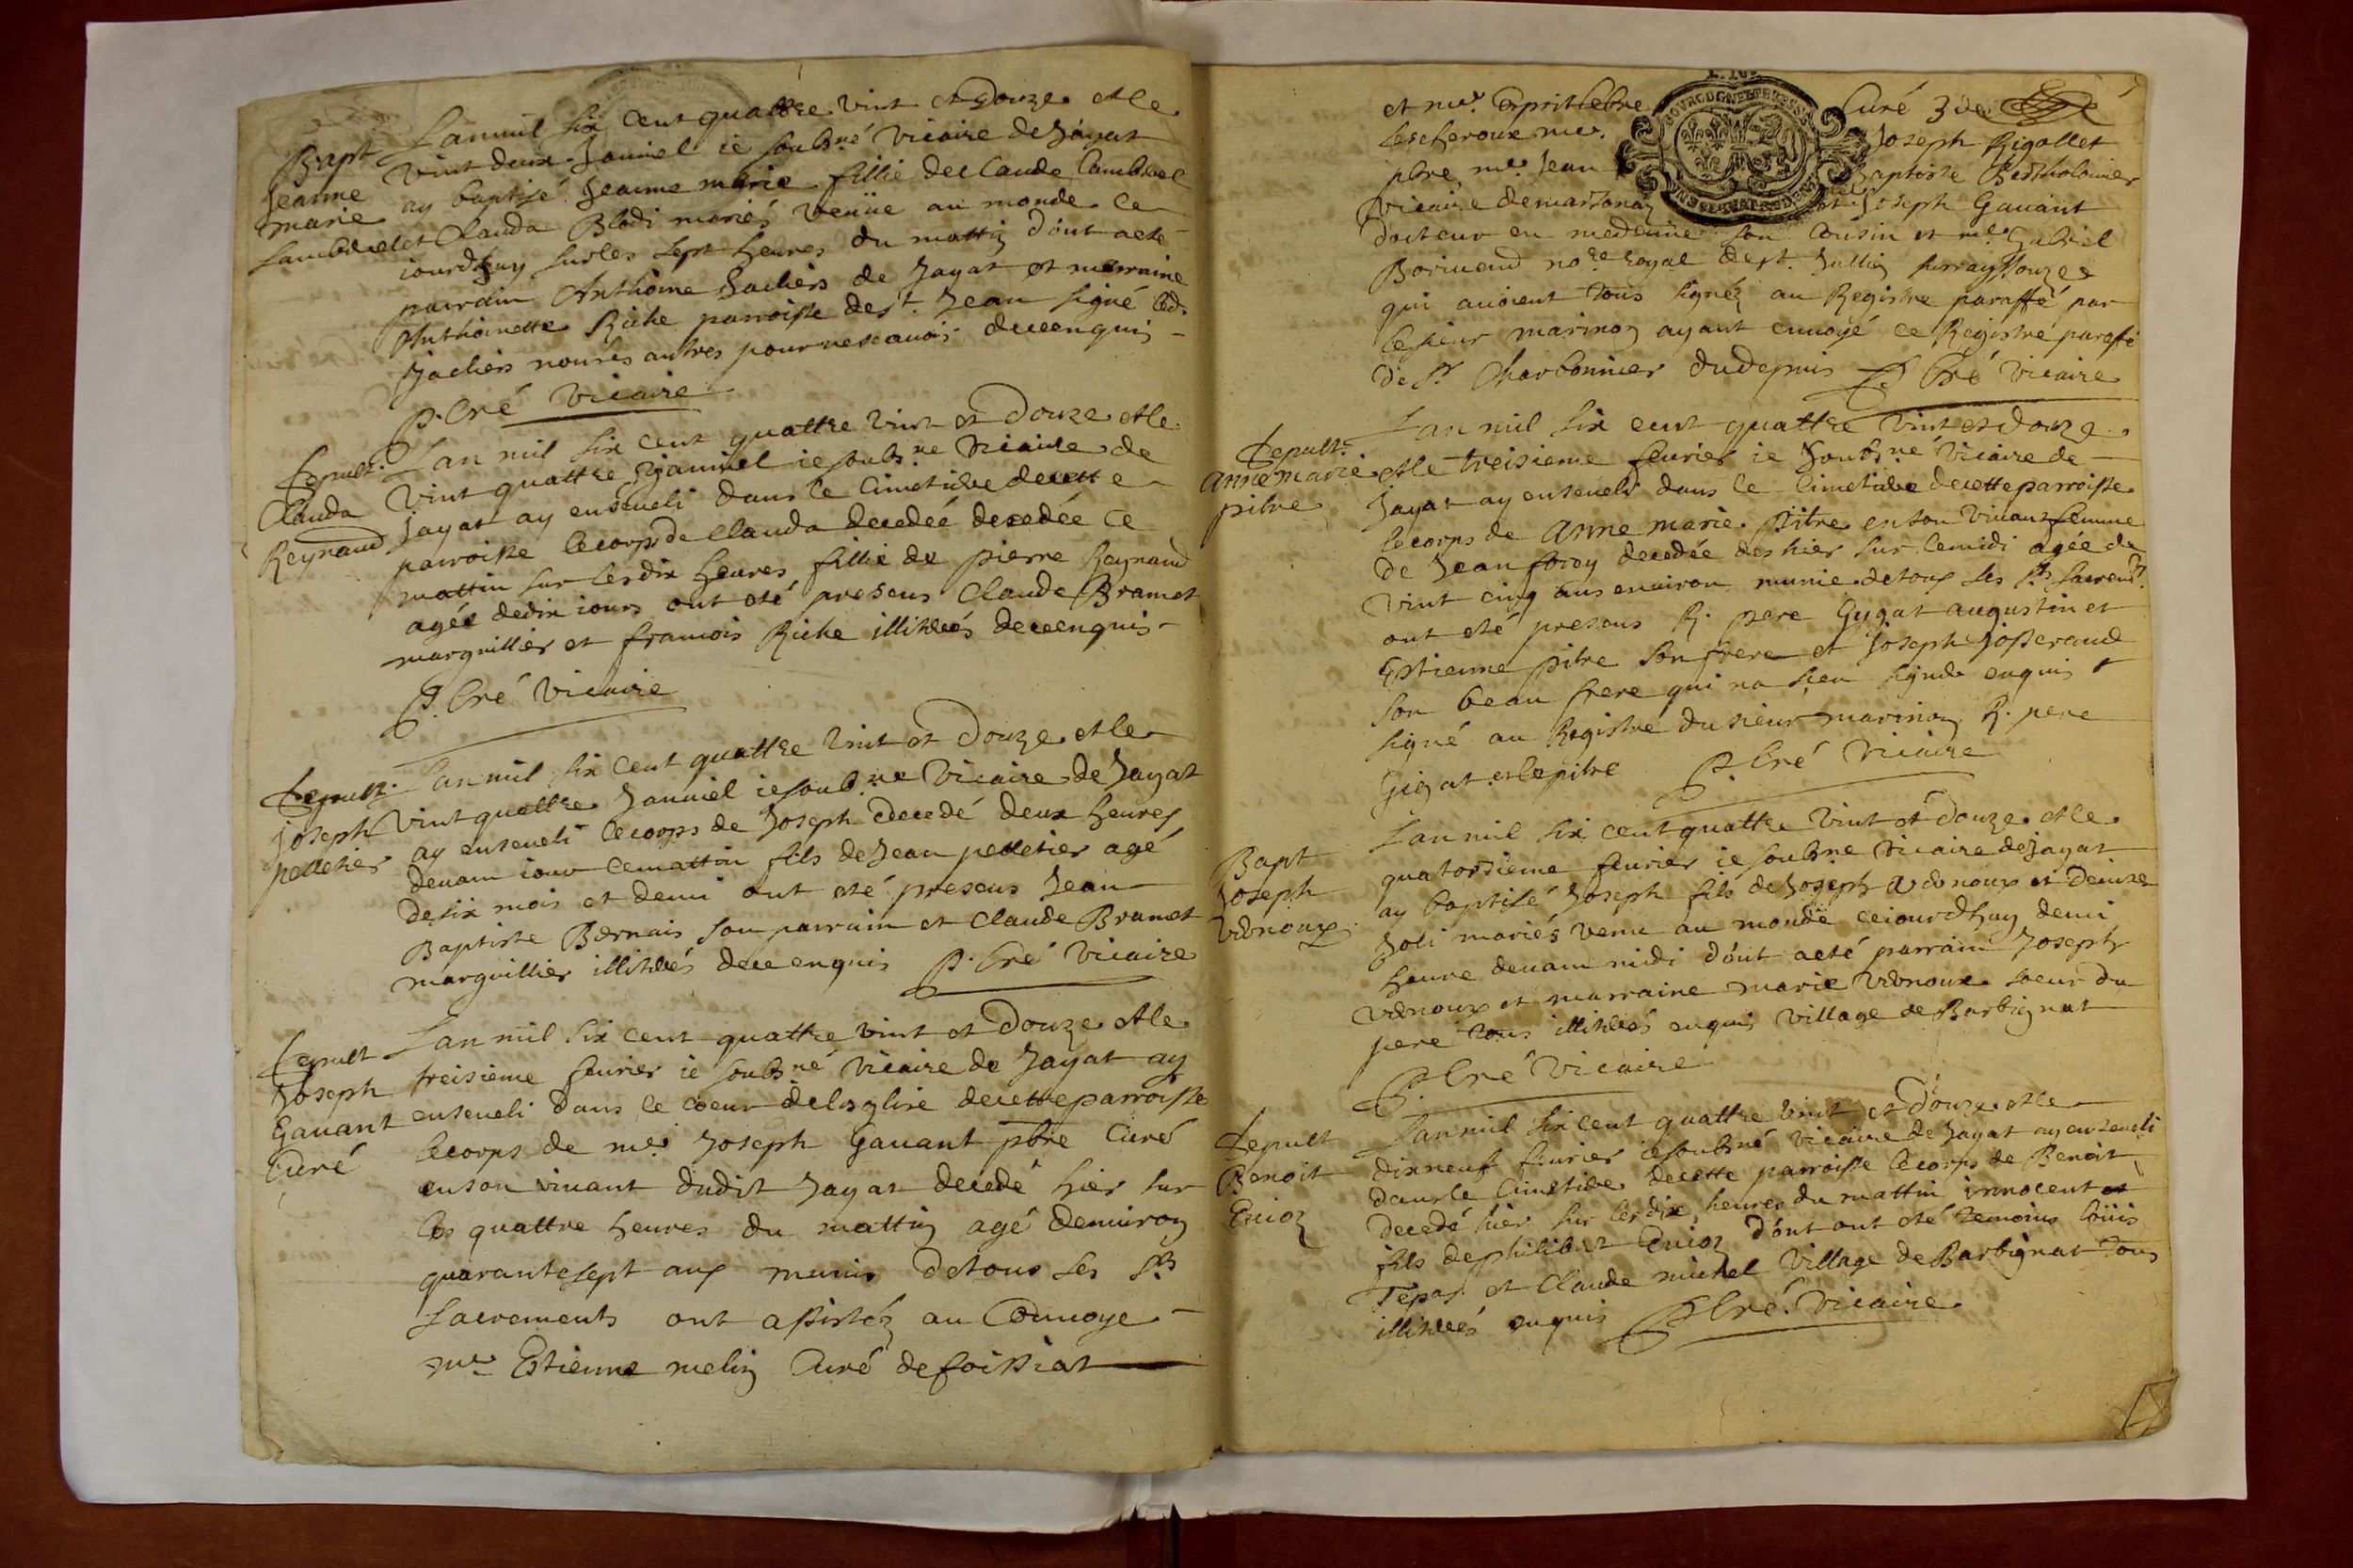 Bapt
Jeanne
marie
Lambdelet
Lan mil six cent quattre vint et Douze et le
vint deux Janviel ie soubs.né Vicaire de Jayat
ay baptisé Jeanne marie fillie de Claude
et Clauda Blodi mariés venüe au monde ce
iourdhuy sur les sept heures du mattin dont a eté
parrain Anthoine Jacliers de Jayat et marraine
Anthoinette Riche parroisse de st. Jean signé led.
Jacliers non les autres pour ne scavoir de ce enquis
P. Cré Vicaire
Sepult.
Clauda
Reynaud
Lan mil six cent quattre vint et Douze et le
vint quattre Janviel ie soubs.né Vicaire de
Jayat ay enseveli dans le Cimetiere de cette
parroisse le corps de Clauda decedeé decedée ce
mattin sur les dix heures fillie de pierre Reynaud
ageé de dix iours ont eté presens Claude Bramet
marguillier et francois Riche illitérés de ce enquis
P. Cré Vicaire
Sepult.
Joseph
pelletier
Lan mil six cent quattre vint et Douze et le
vint quattre Janviel ie soub.né Vicaire de Jayat
ay enseveli le corps de Joseph decedé deux heures
devam iour ce mattin fils de Jean pelletier agé
de six mois et demi ont eté presens Jean
Baptiste Bernais son parrain et Claude Bramet
marguillier illitérés de ce enquis P. Cré Vicaire
Sepult
Joseph
Gavant
Curé
Lan mil six cent quattre vint et Douze et le
treisieme fevrier ie soubs.né Vicaire de Jayat ay
enseveli dans le coeur de leglise de cette parroisse
le corps de mre Joseph Gavant pbre Curé
en son vivant dudit Jayat decedé hier sur
les quattre heures du mattin agé demiron
quarante sept ans munis de tous les sts
sacrements ont assistéz au Convoye
mre Estienne melin Curé de foissiat
et mre Esprit lebre Curé 3 de
Lescheroux mre. Joseph Rigollet
pbre, mre Jean Baptiste Bertholomier
Vicaire de martonay et Joseph Gavant
docteur en medecine son Cousin et mre Gabriel
Borivend nore royal de st. Jullin surrayssouze
qui avoient tous signéz au Registre paraffé par
le sieur marinon ayant envoyé ce Registre paraffé
de Sr Charbonnier dudepuis P. Cré Vicaire
Sepult.
Anne marie
pitre
Lan mil six cent quattre vint et Douze
et le treisieme fevrier ie soubs.né Vicaire de
Jayat ay enseveli dans le Cimetiere de cette parroisse
le corps de Anne marie pitre en son vivant femme
de Jean decedée des hier sur le midi agée de
vint cinq ans environ munie de tous les sts sacremts.
ont eté presens R. pere Gygat augustin et
Estienne pitre son frere et Joseph Josserand
son beau frere qui na sceu signé enquis
signé au Registre du sieur marinon R. pere
Gigat et le pitre P. Cré Vicaire
Bapt
Joseph
Vernoux
Lan mil six cent quattre vint et Douze et le
quatorsieme fevrier ie soubs.né Vicaire de Jayat
ay baptisé Joseph fils de Joseph Vernoux et Denise
Joli mariés venu au monde ceiourdhuy demi
heure devam midi dont a eté parrain Joseph
Vernoux et marraine marie Vernoux soeur du
pere tous illitérés enquis village de Barbignat
P. Cré Vicaire
Sepult
Benoit
Lan mil six cent quattre vint et Douze et le
dixneuf fevrier ie soubs.né Vicaire de Jayat ay enseveli
dans le Cimetiere de cette parroisse le corps de Benoit
decedé hier sur les dix heures du mattin innocent et
fils de philibert dont ont eté temoins Loüis
Tepas et Claude michel village de Barbignat tous
illitérés enquis P. Cré Vicaire